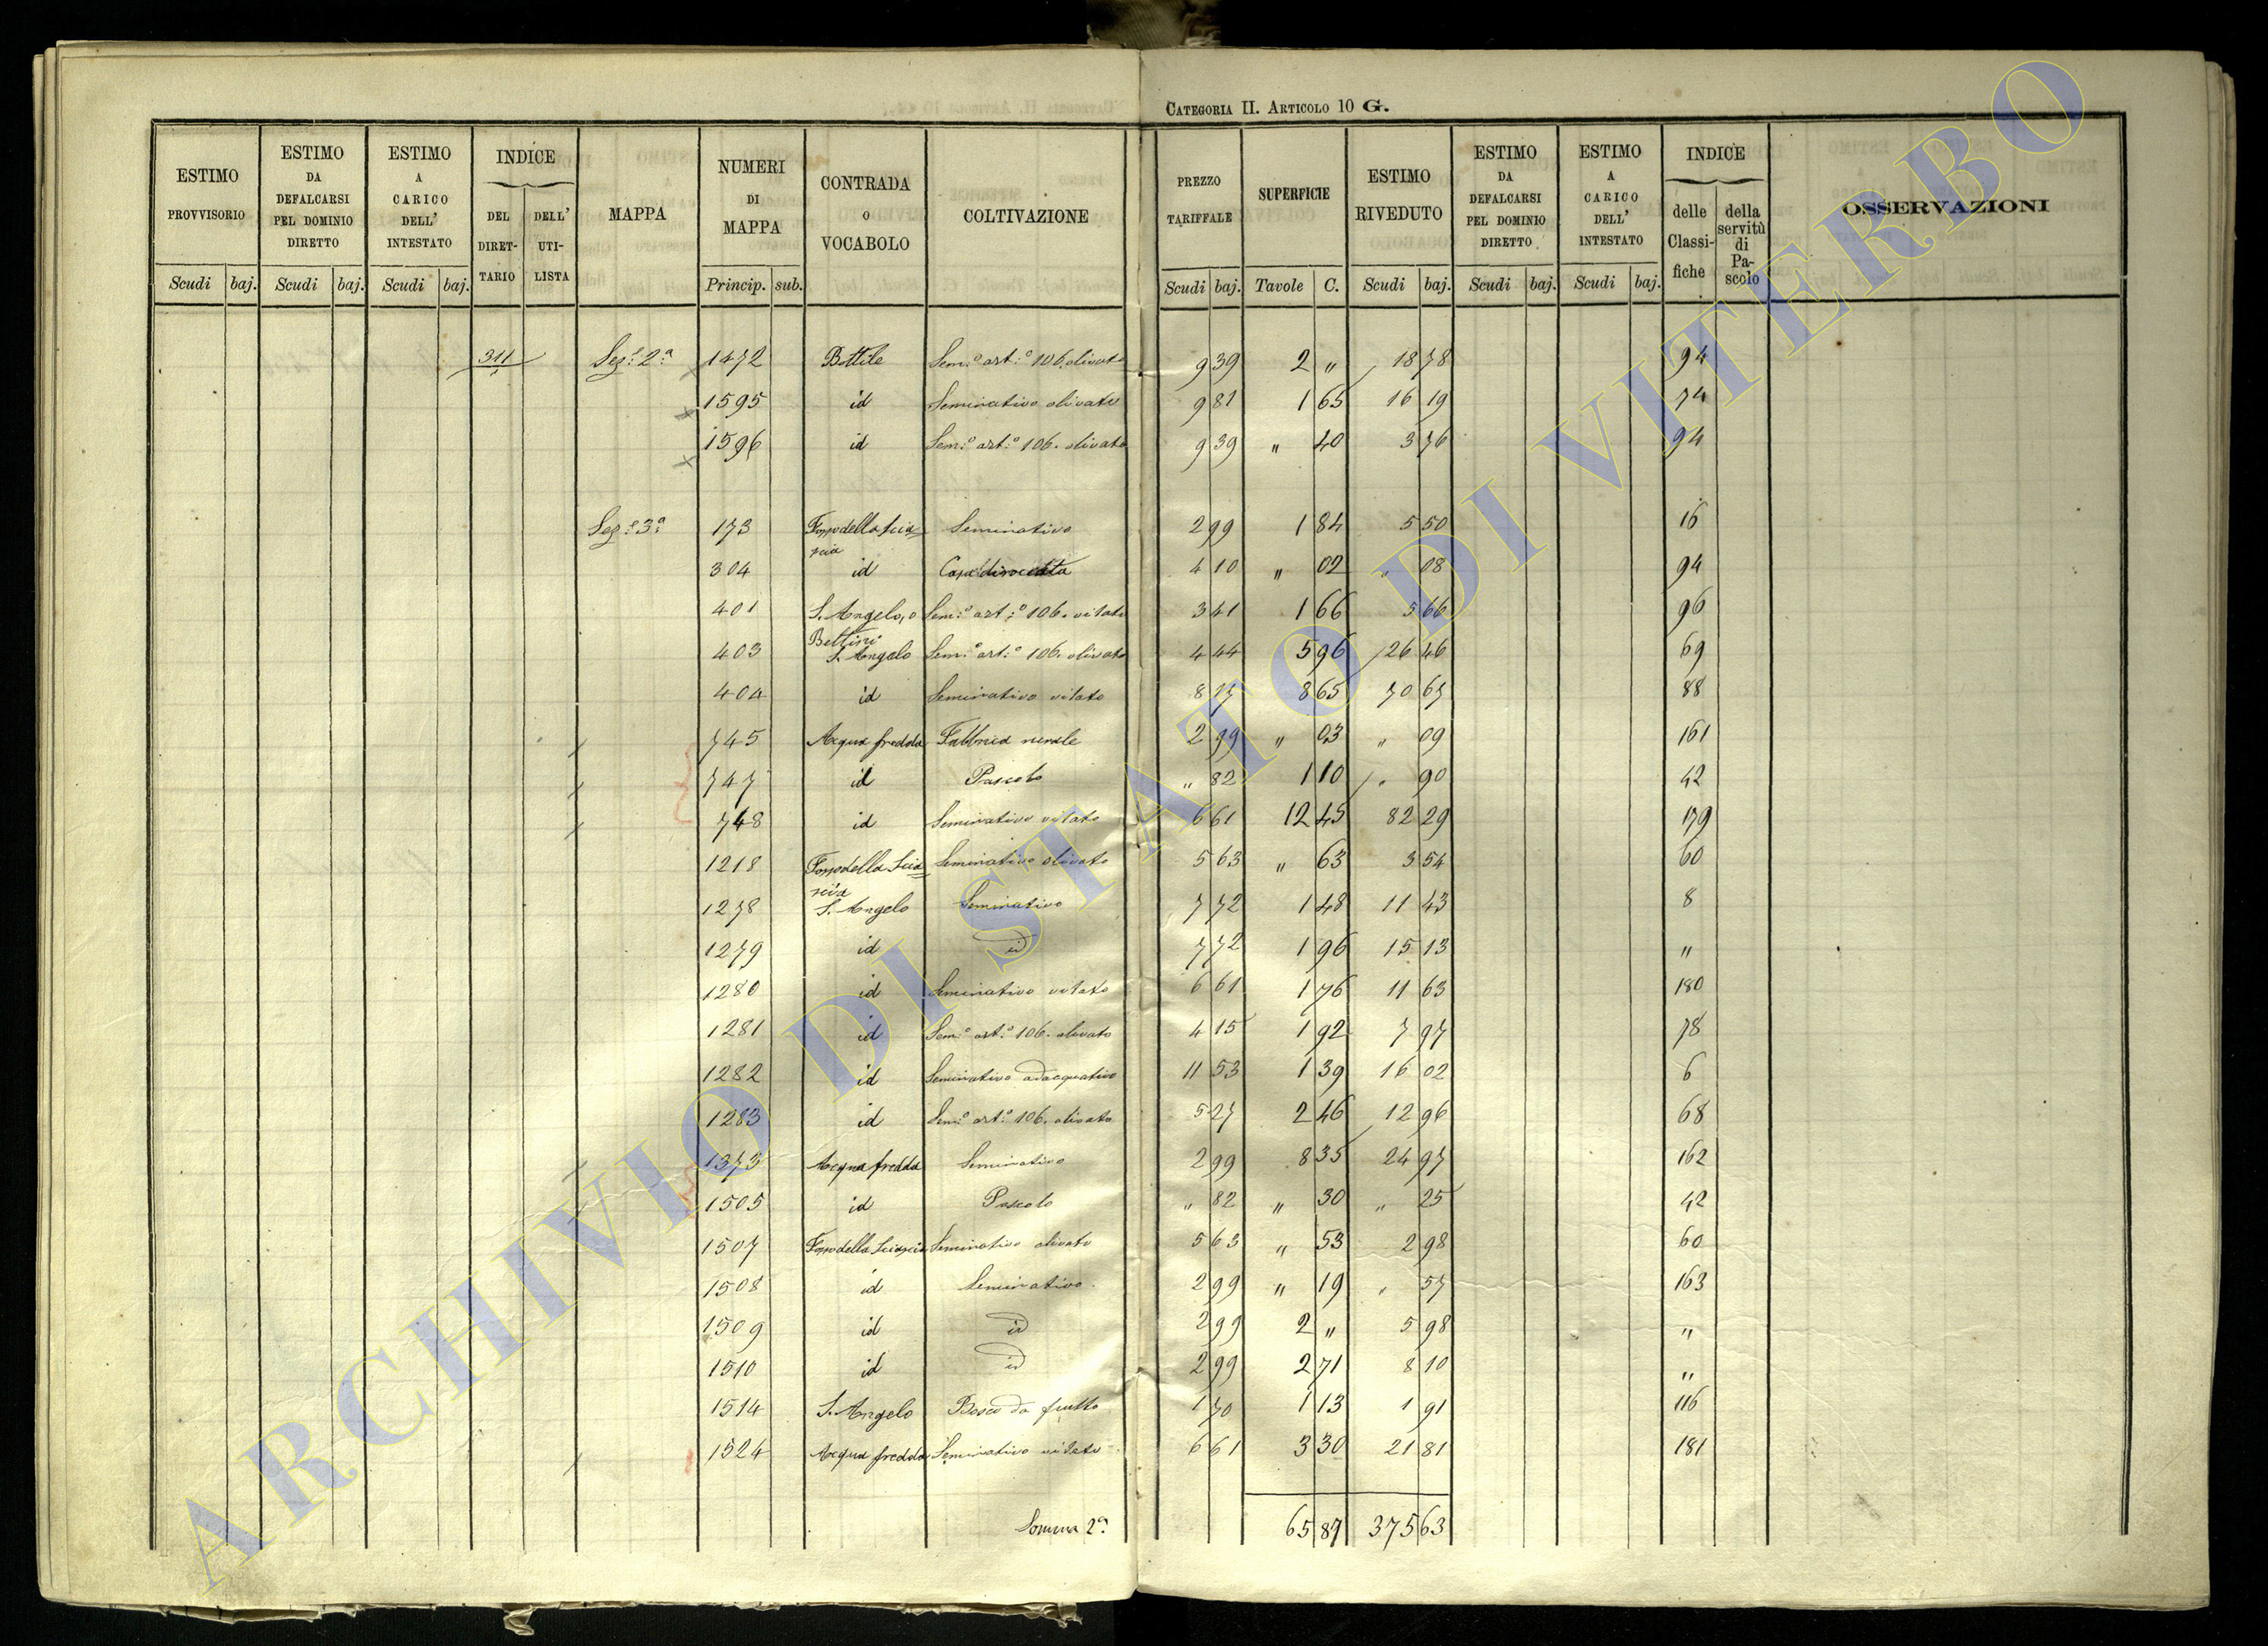 CATEGORIA II. ARTICOLO 10 G.
ESTIMO PROVVISORIO | ESTIMO DA DEFALCARSI PEL DOMINIO DIRETTO | ESTIMO A CARICO DELL' INTESTATO | INDICE | MAPPA | NUMERI DI MAPPA | CONTRADA O VOCABOLO | COLTIVAZIONE | PREZZO TARIFFALE | SUPERFICIE | ESTIMO RIVEDUTO | ESTIMO DA DEFALCARSI PEL DOMINIO DIRETTO | ESTIMO A CARICO DELL' INTESTATO | INDICE | OSSERVAZIONI
DEL DIRETTARIO | DELL' UTILISTA | delle Classifiche | della servitù di Pascolo
Scudi | baj. | Scudi | baj. | Scudi | baj. | Princip. | sub. | Scudi | baj. | Tavole | C. | Scudi | baj. | Scudi | baj. | Scudi | baj.
311 | Sez.e 2a | 1472 | Bottile | Sem.o art.o 106. olivato | 9 39 | 2 " | 18 78 | 94
1595 | id | Seminativo olivato | 9 81 | 1 65 | 16 19 | 74
1596 | id | Sem.o art.o 106. olivato | 9 39 | " 40 | 3 76 | 94
Sez.e 3a | 173 | Fosso della Scia= | Seminativo | 2 99 | 1 84 | 5 50 | 16
scia
304 | id | Casa diroccata | 4 10 | " 02 | " 08 | 94
401 | S. Angelo, o | Sem.o art.o 106. vitato | 3 41 | 1 66 | 5 66 | 96
Bettini
403 | S. Angelo | Sem.o art.o 106. olivato | 4 44 | 5 96 | 26 46 | 69
404 | id | Seminativo vitato | 8 17 | 8 65 | 70 67 | 88
745 | Acqua fredda | Fabbrica rurale | 2 99 | " 03 | " 09 | 161
747 | id | Pascolo | " 82 | 1 10 | " 90 | 42
748 | id | Seminativo vitato | 6 61 | 12 45 | 82 29 | 179
1218 | Fosso della Scia= | Seminativo olivato | 5 63 | " 63 | 3 54 | 60
scia
1278 | S. Angelo | Seminativo | 7 72 | 1 48 | 11 43 | 8
1279 | id | id | 7 72 | 1 96 | 15 13 | "
1280 | id | Seminativo vitato | 6 61 | 1 76 | 11 63 | 180
1281 | id | Sem.o art.o 106. olivato | 4 15 | 1 92 | 7 97 | 78
1282 | id | Seminativo adacquativo | 11 53 | 1 39 | 16 02 | 6
1283 | id | Sem.o art.o 106. olivato | 5 27 | 2 46 | 12 96 | 68
1373 | Acqua fredda | Seminativo | 2 99 | 8 35 | 24 97 | 162
1505 | id | Pascolo | " 82 | " 30 | " 25 | 42
1507 | Fosso della Sciascia | Seminativo olivato | 5 63 | " 53 | 2 98 | 60
1508 | id | Seminativo | 2 99 | " 19 | " 57 | 163
1509 | id | id | 2 99 | 2 " | 5 98 | "
1510 | id | id | 2 99 | 2 71 | 8 10 | "
1514 | S. Angelo | Bosco da frutto | 1 70 | 1 13 | 1 91 | 116
1524 | Acqua fredda | Seminativo vitato | 6 61 | 3 30 | 21 81 | 181
Somma 2a | 65 87 | 375 63
ARCHIVIO DI STATO DI VITERBO